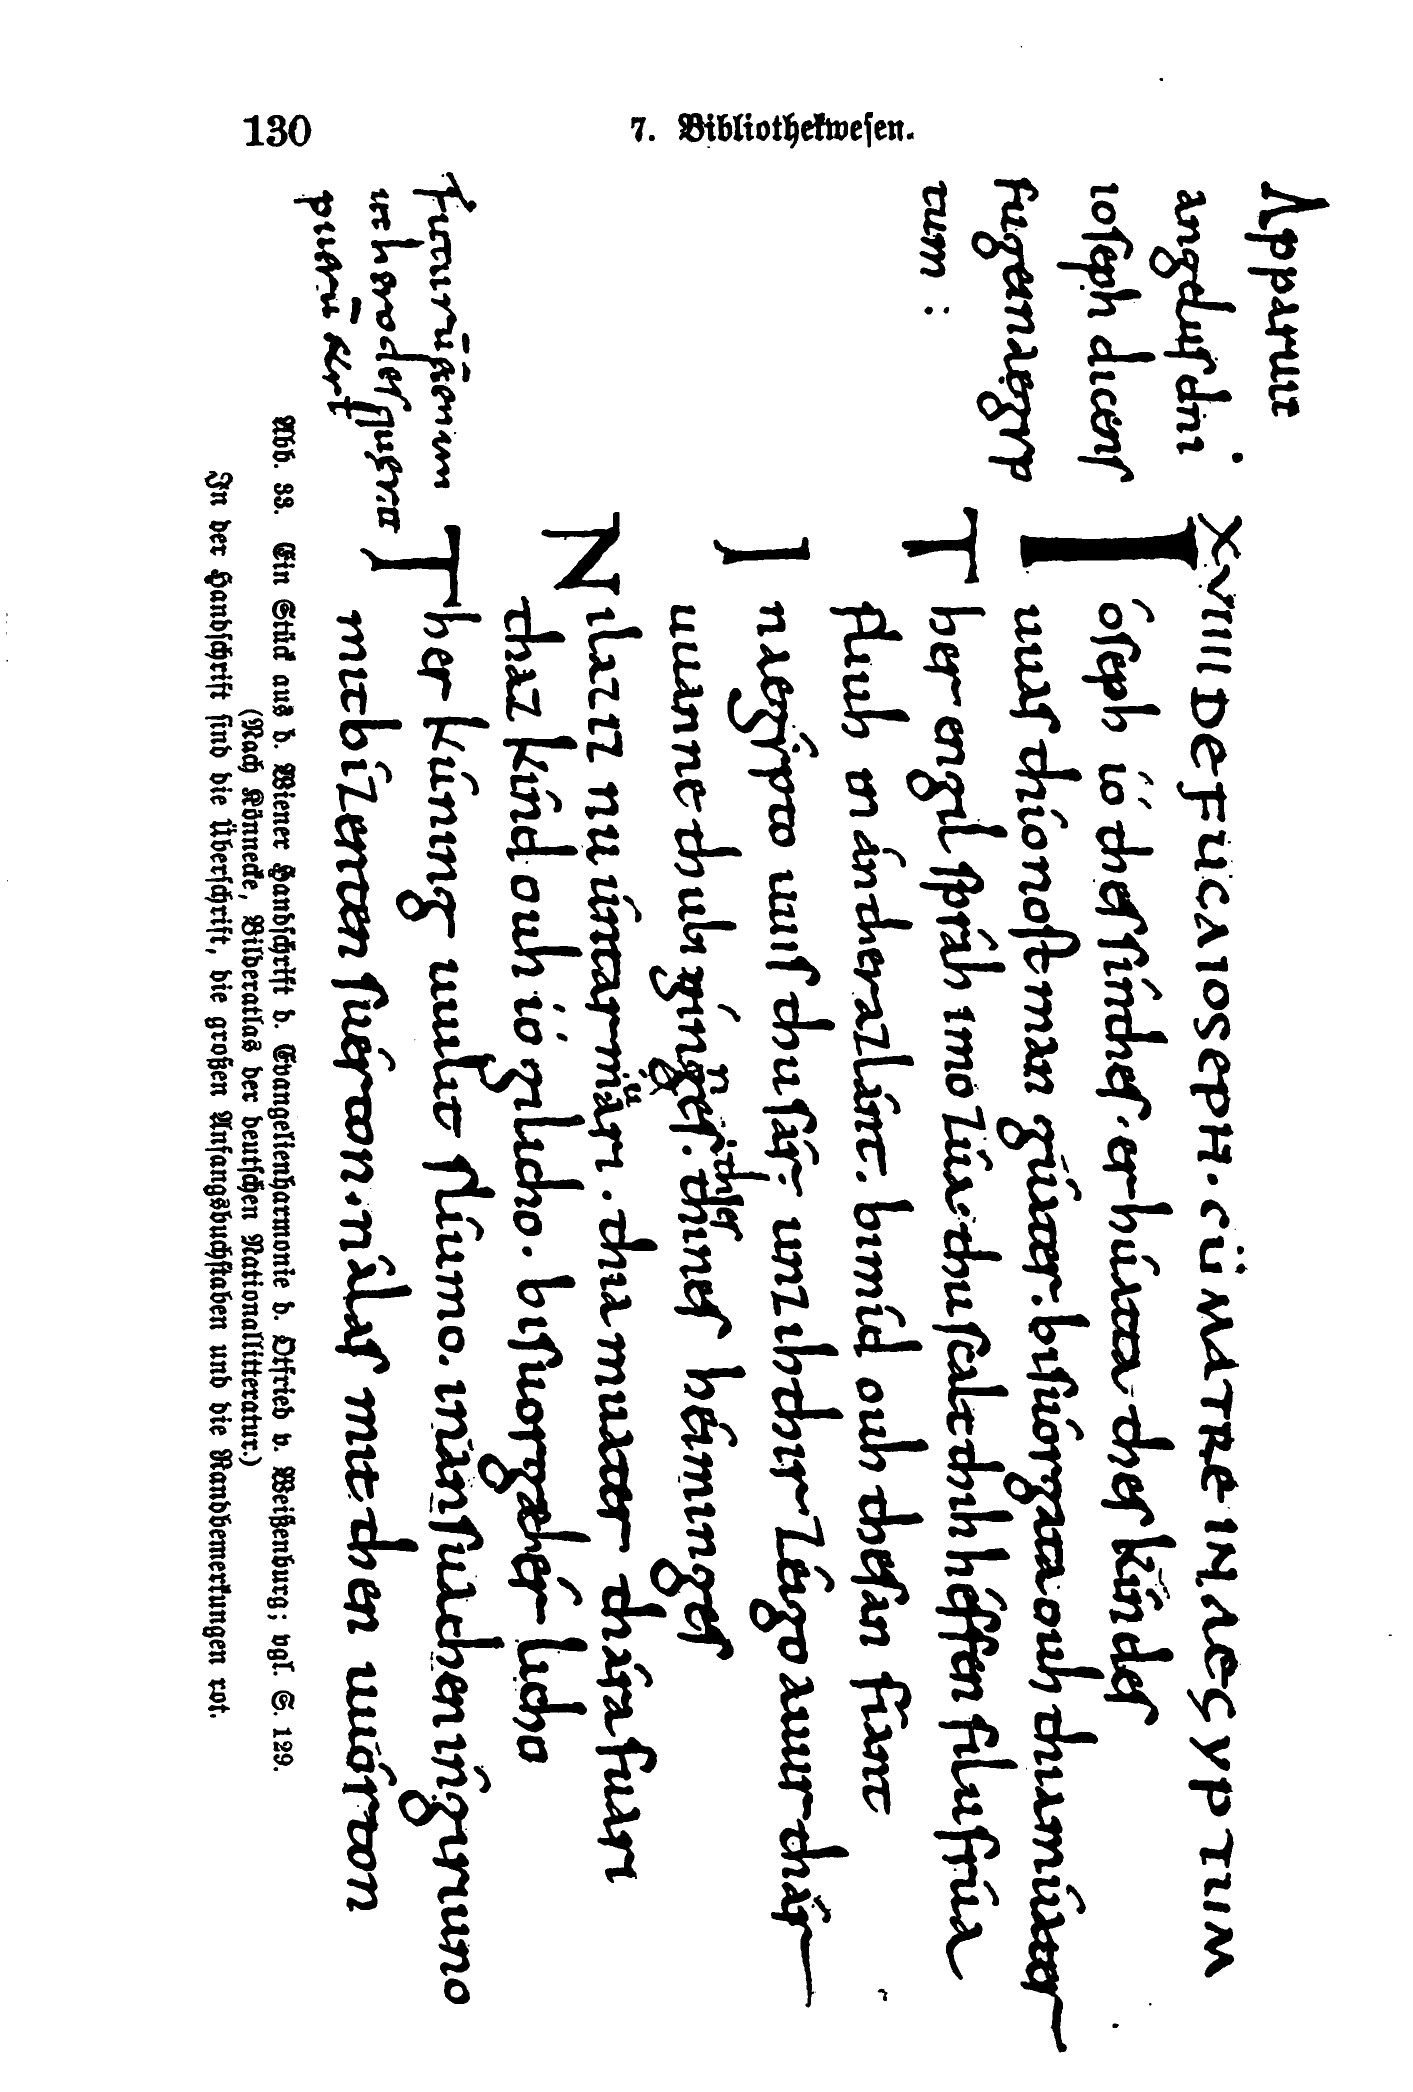 130
7. Bibliothekwesen.
Apparuit
angelus dni
ioseph dicens
fuge inaegyp
tum :
XVIIII DE FUGA IOSEPH. CŪ MATRE IN AEGYPTUM
Ioseph ió thes sindes. er húatta thes kindes
uuas thíonostman gúater. bisuórgata ouh thia múater
Ther engil sprah imo zúa. thu scalt thih héffen filu frúa
fliuh in ántheraz lánt. bimíd ouh thesan fiant
In aegípto uuis thu sár. unz ih thir zéigo auur thár
uuanne thu biginnes. thines heiminges
Ni laz iz nu úntarmari. thia muater thára fuari
thaz kínd ouh io gilicho. bisuorge herlicho
futurū ē enim
ut herodes querat
puerū
Ther kúning uuilit sliumo. inan suachen ingriuno
mit bízenten suérton. nálas mit then uuórton
Abb. 33. Ein Stück aus d. Wiener Handschrift d. Evangelienharmonie d. Otfried v. Weißenburg; vgl. S. 129.
(Nach Könnecke, Bilderatlas der deutschen Nationallitteratur.)
In der Handschrift sind die Überschrift, die großen Anfangsbuchstaben und die Randbemerkungen rot.